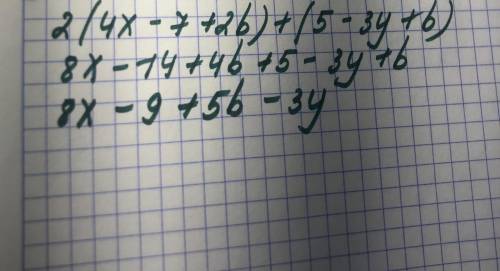 2(4x - 7 + 2b) + (5 - 3y + b)
8x - 14 + 4b + 5 - 3y + b
8x - 9 + 5b - 3y